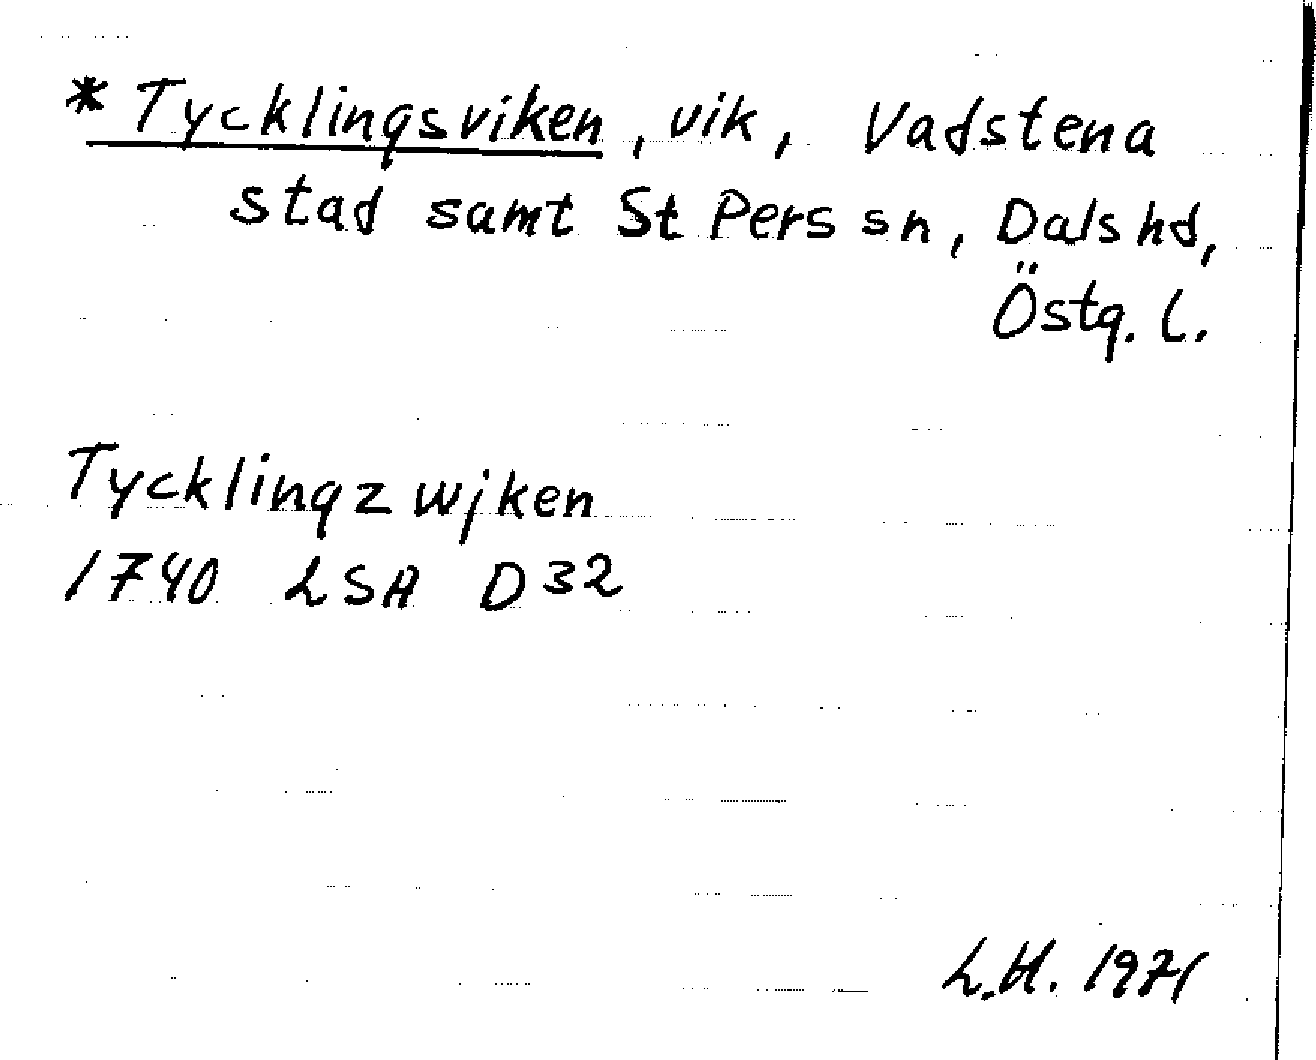 * Tycklingsviken, vik, Vadstena
stad samt St Pers sn, Dals hd,
Östg. l.
Tycklingz wjken
1740 LSA D32
L.H. 1971